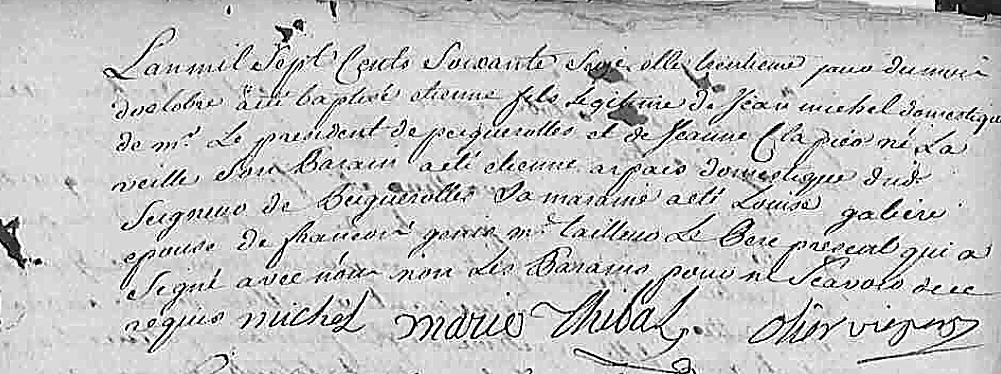 Lan mil sept cents soixante seize et le trentieme jour du mois
doctobre a été baptisé etienne fils légitime de Jean michel domestique
de mr. Le president de pesquerolles et de Jeanne Clapiés né La
veille son Parain a eté etienne arpais domestique dud.
Seigneur de Pesquerolles Sa maraine a eté Louise gabére
epouse de francois genies me. tailleur Le Pere present qui a
signé avec nous non Les Parains pour ne Scavoir de ce
requis michel marie Thibal olier vic per